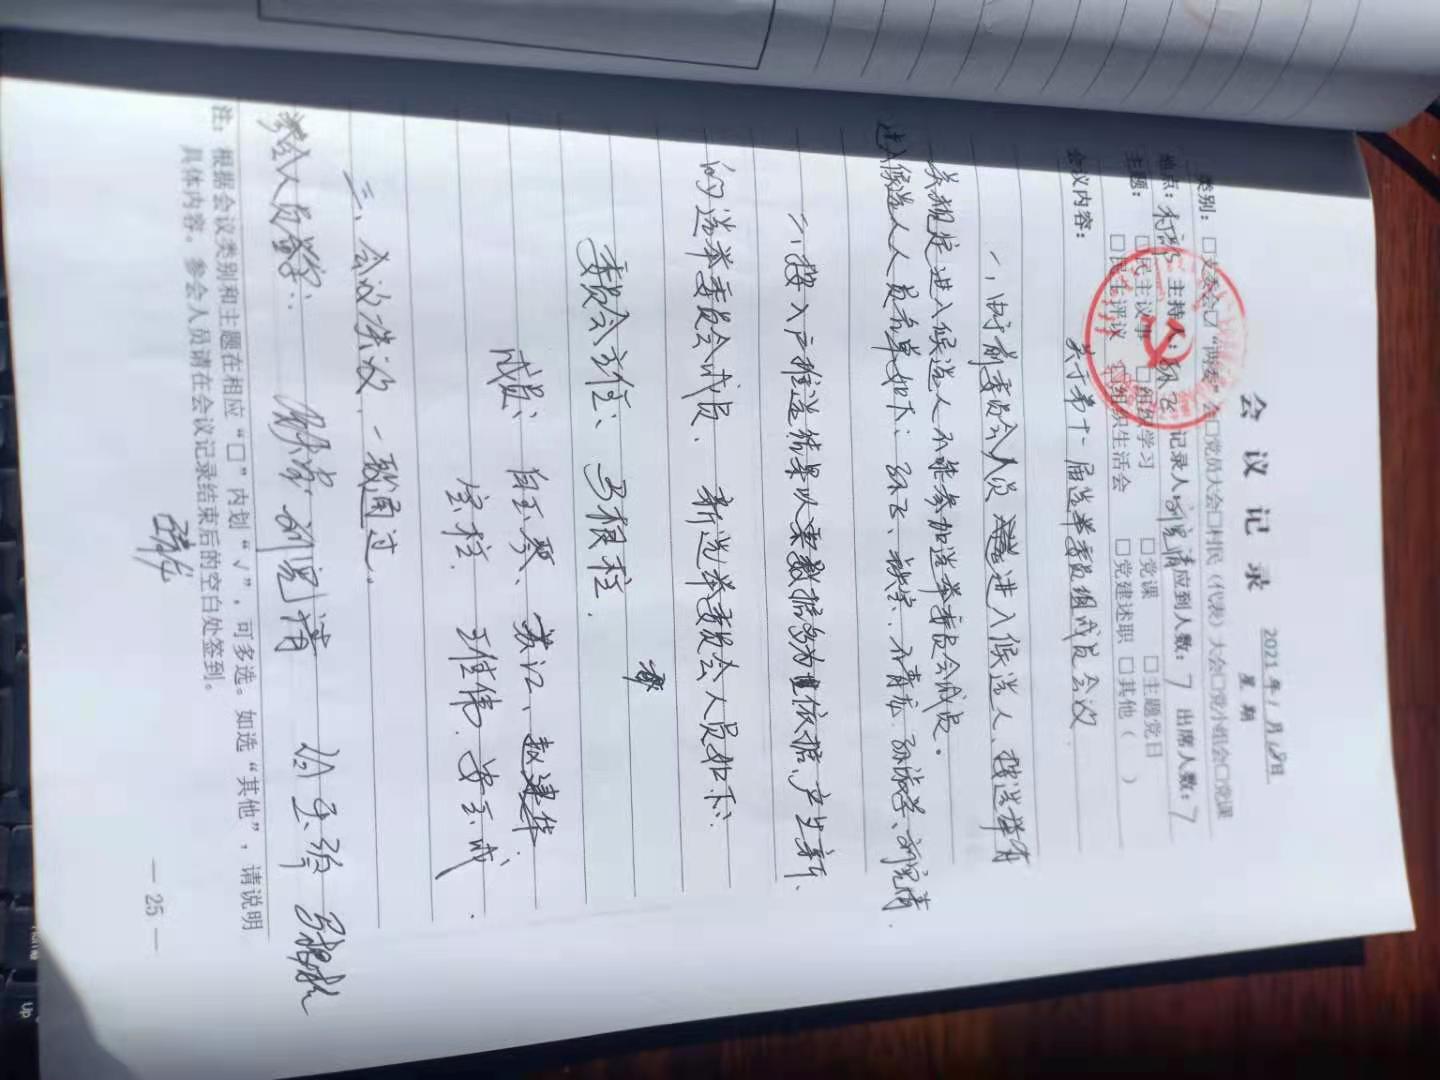 会 议 记 录
2021年1月18日
星 期
类别:□支委会☑“两委”会□党员大会□村民(代表)大会□党小组会□党课
地点:村部 主持人:孙飞 记录人:刘宪清 应到人数:7 出席人数:7
主题:□民主议事 □组织学习 □党课 □主题党日
□民主评议 □组织生活会 □党建述职 □其他( )
会议内容: 关于第十一届选举委员组成员会议
一、由于前委员会人员 进入候选人、按选举有
关规定进入候选人不能参加选举委员会成员。
进入候选人人员名单如下:孙飞、 刘宪清.
二、按入户推选结果以票数据多为 依据、产生新
的选举委员会成员. 新选举委员会人员如下:
委员会主任:马根柱.
成员: 自玉琴、 江、赵建华、
宝柱. 王佳伟. 安玉成.
三、会议决议.一致通过。
参会人员签字: 刘宪清 马根柱
注:根据会议类别和主题在相应“□”内划“√”,可多选。如选“其他”,请说明
具体内容。参会人员请在会议记录结束后的空白处签到。
— 25 —
Up